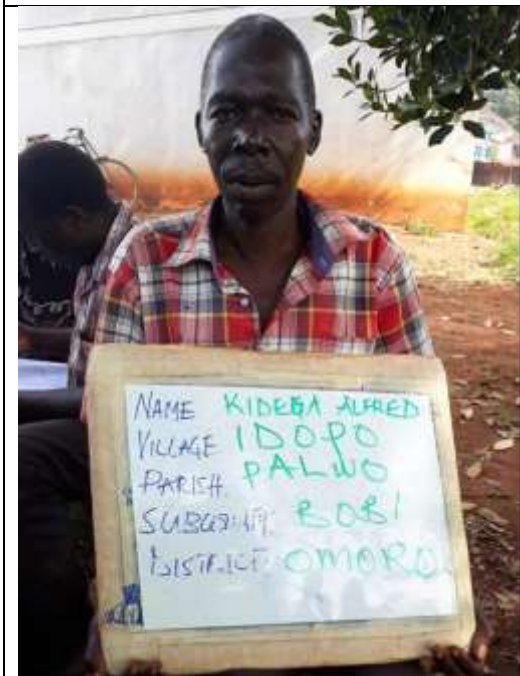 NAME KIDEGA ALFRED
VILLAGE IDOPO
PARISH. PALWO
SUBCOUNTY: BOBI
DISTRICT: OMORO